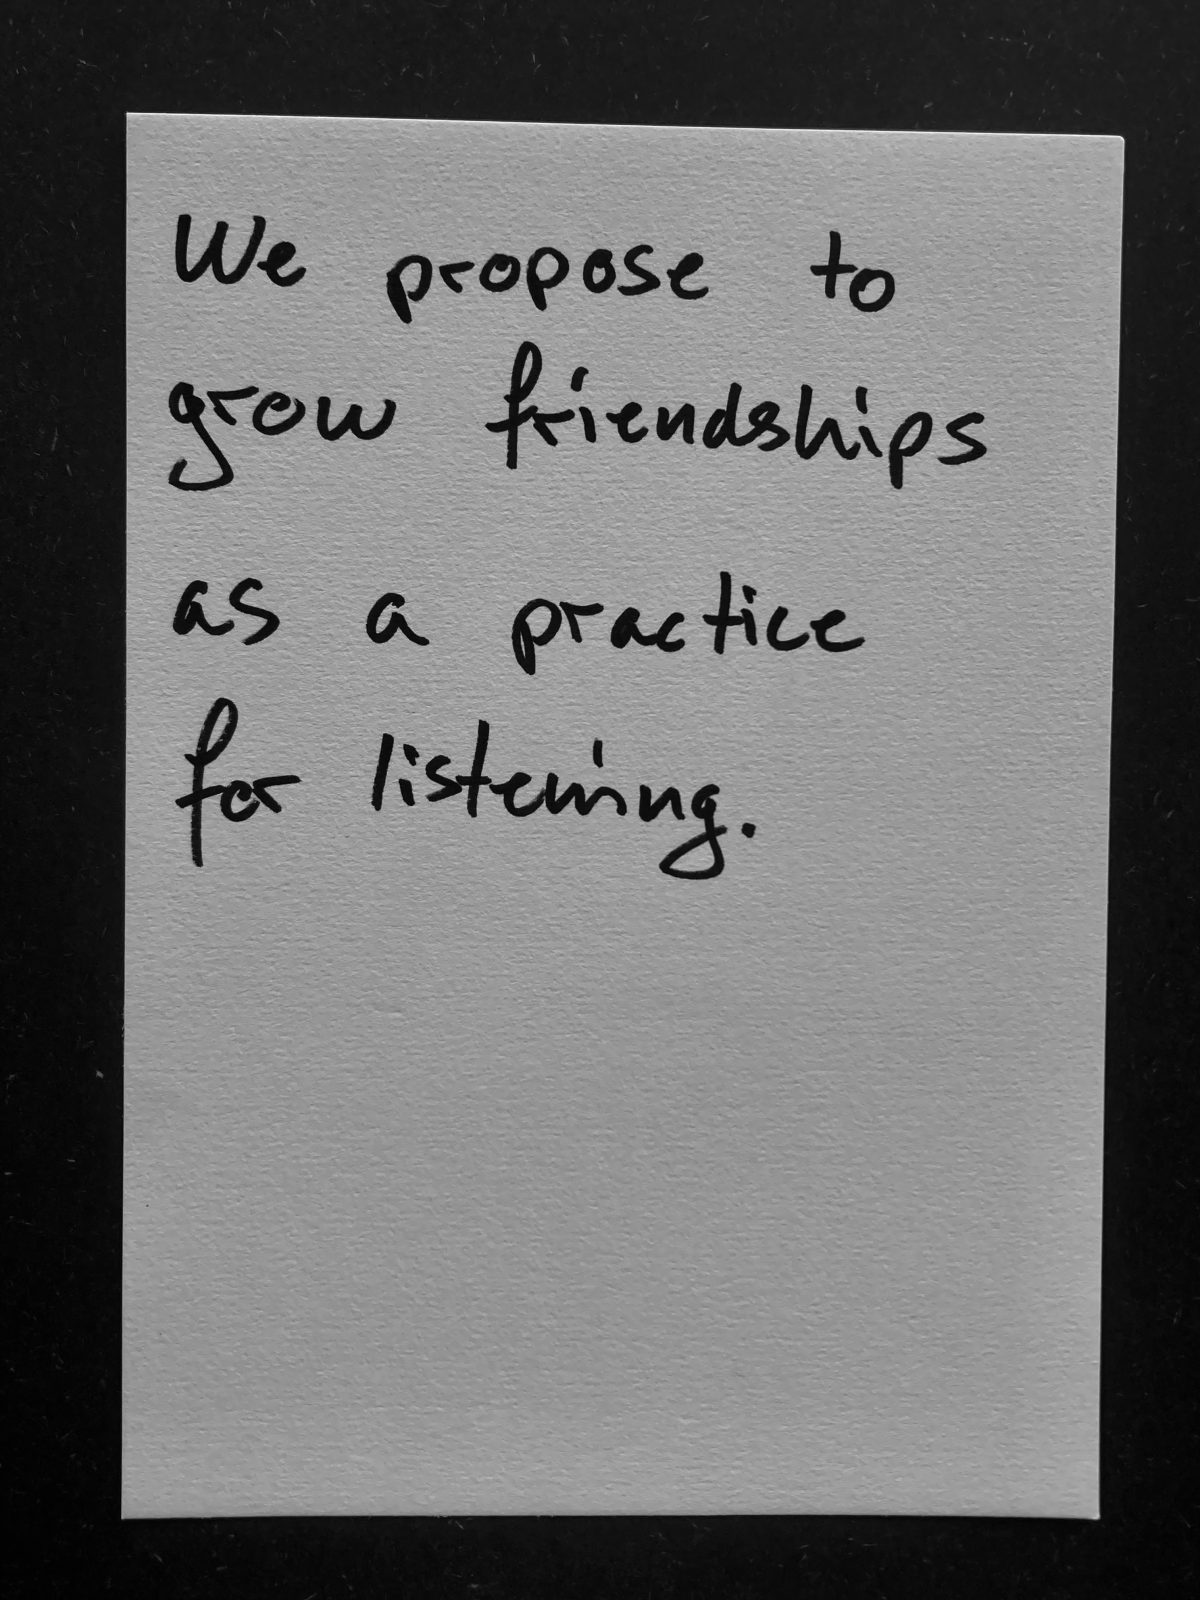 We propose to
grow friendships
as a practice
for listening.